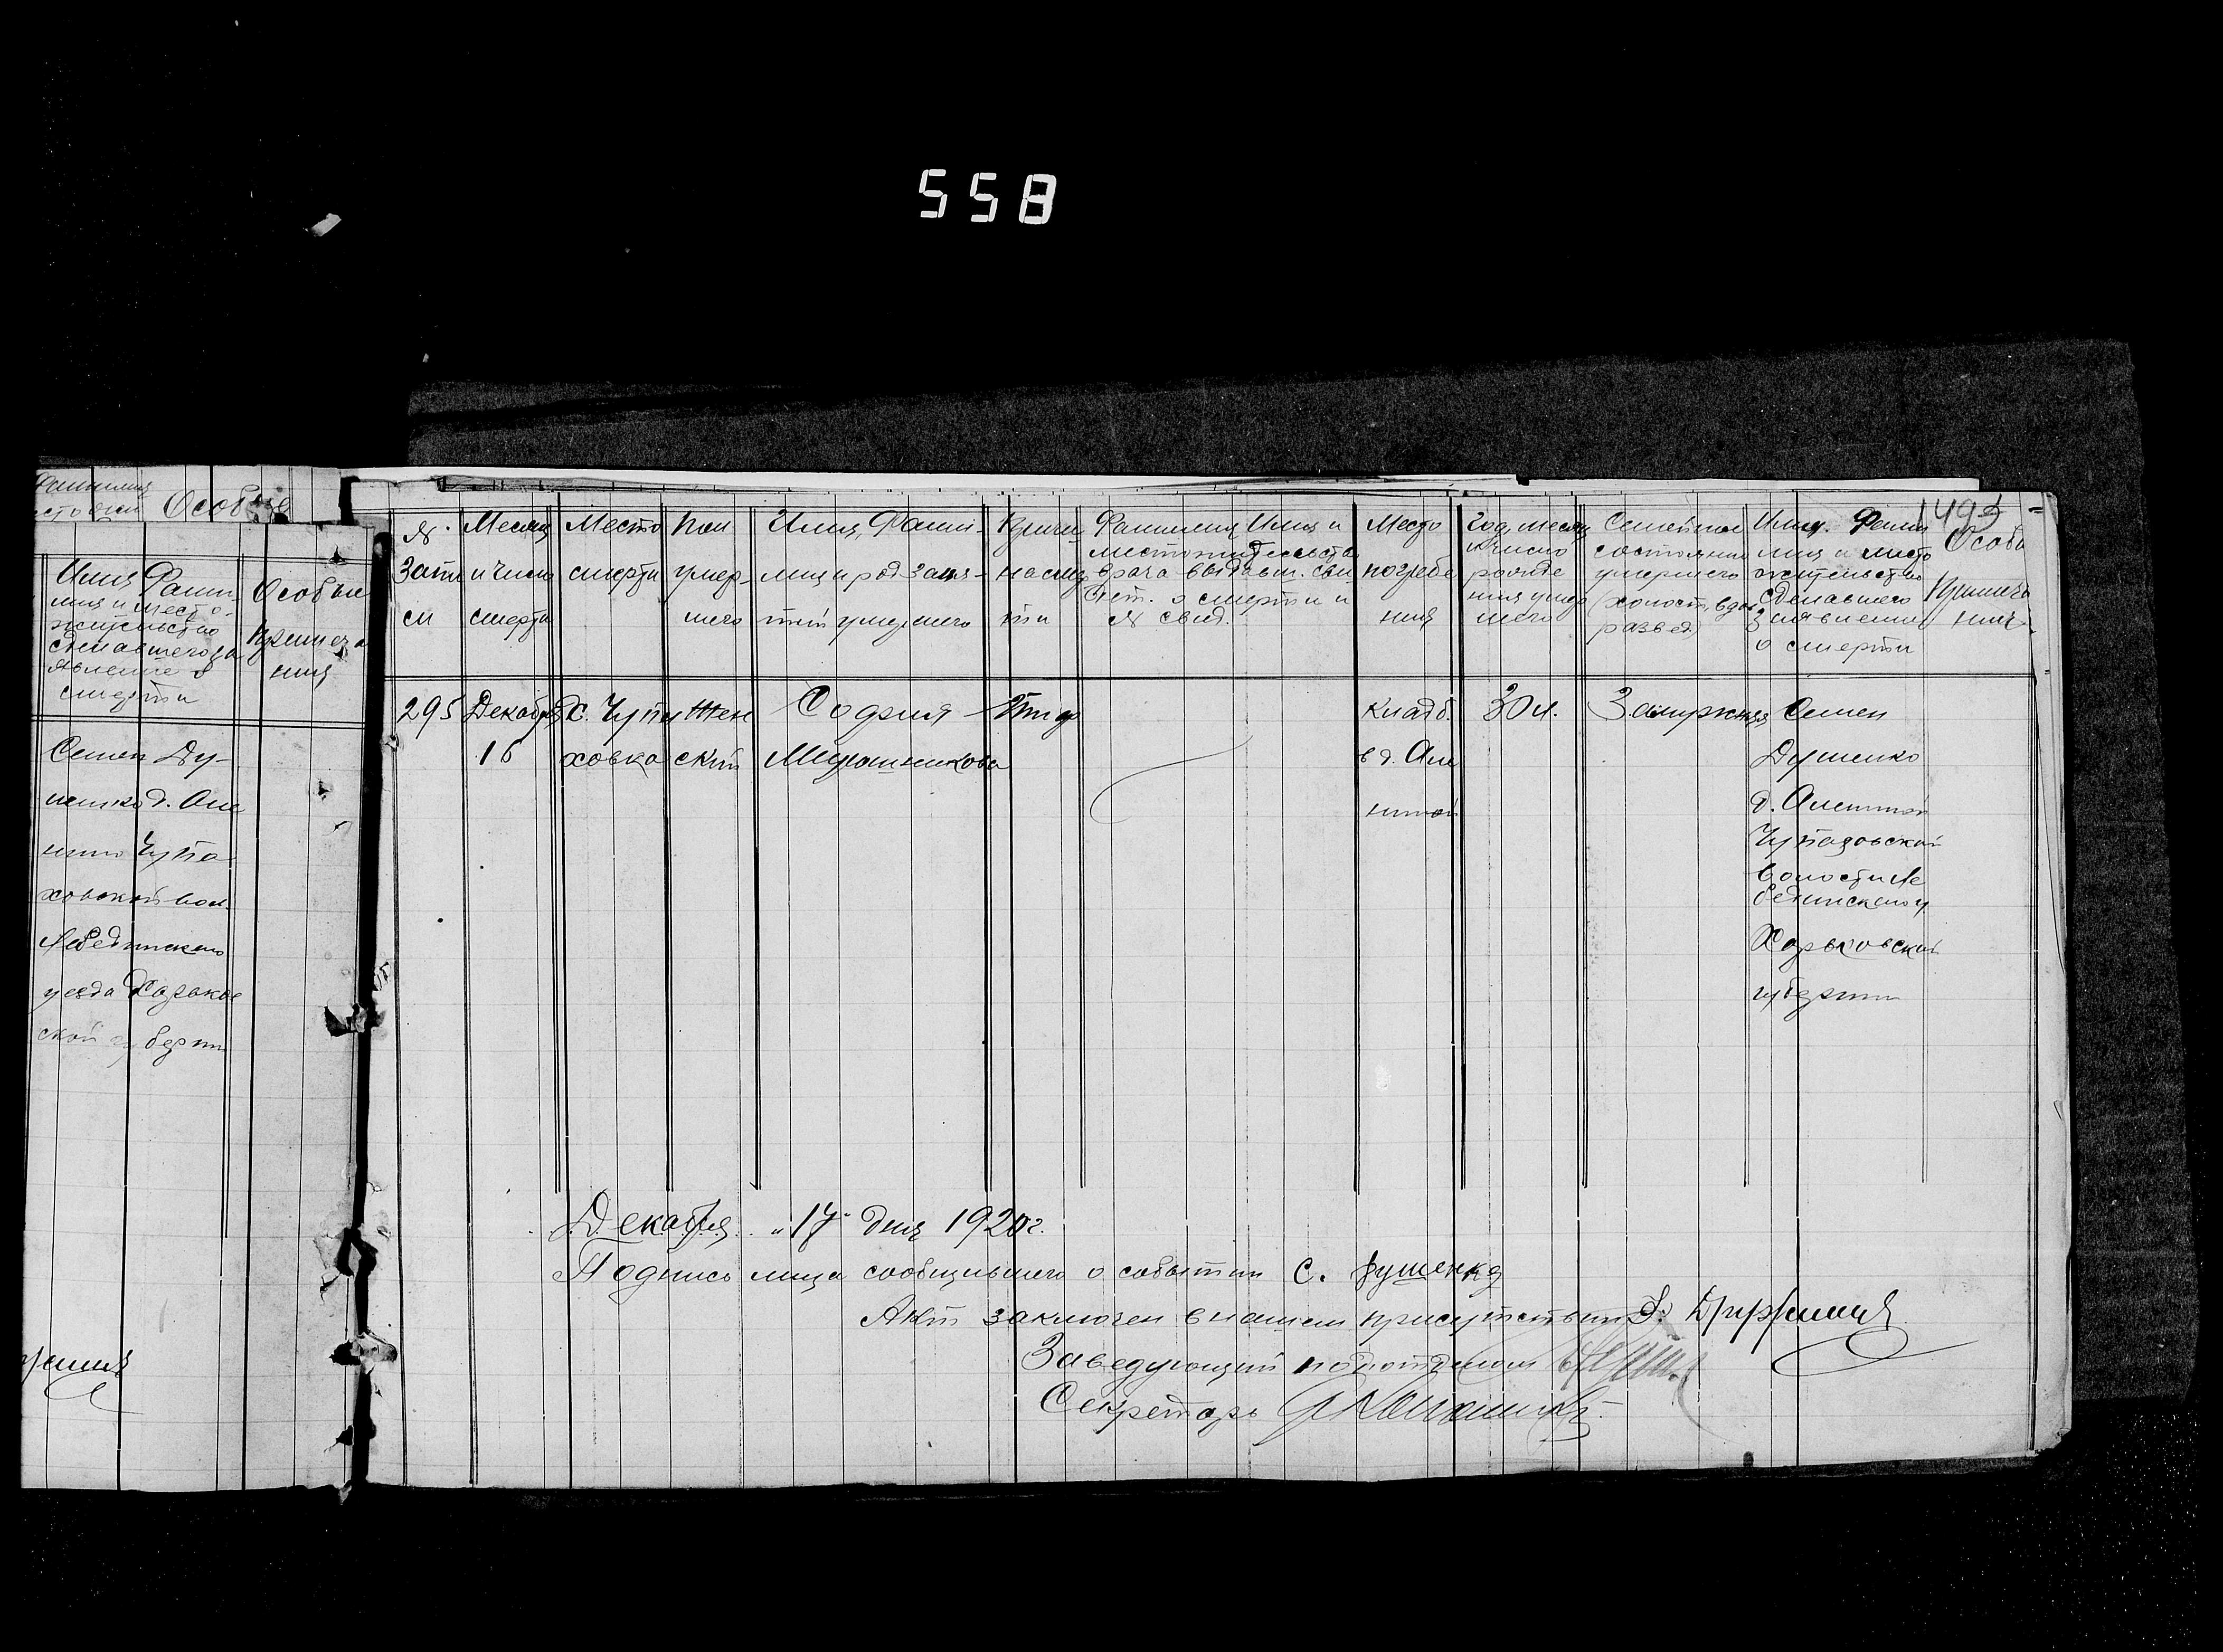 558
Фамилия
Особые
Имя Фами-
лия и место-
жительство
сделавшего за
явление о
смерти
Особые
примеча
ния
Семен Ду-
шенко д. Але
нино Чупа
ховской вол.
Лебединского
уезда Харьков
ской губернии
1493
№.
Запи
си
Месяц
и число
смерти
Место
смерти
Пол
умер-
шего
Имя, Фами-
лия и род заня-
тий умершего
Причи
на смер
ти
Фамилия Имя и
местожительство
врача выдавш. сви
дет. о смерти и
№ свид.
Место
погребе
ния
Год, месяц
и число
рожде
ния умер
шего
Семейное
состояние
умершего
(холост, вдов
развед.)
Имя. Фами
лия и место
жительство
сделавшего
заявление
о смерти
Особы
примеча
ния
295
Декабря
16
С. Чупа
ховка
Жен
ский
София
Мирошникова
Тиф
Кладб.
в д. Але
ниной
30 л.
Замужняя
Семен
Душенко
д. Алениной
Чупаховской
волости Ле
бединского у
Харьковской
губернии
Декабря "17" дня 1920 г.
Подпись лица сообщившего о событии С. Душенко
Акт заключен в нашем присутствии
Заведующий подотделом
Секретарь